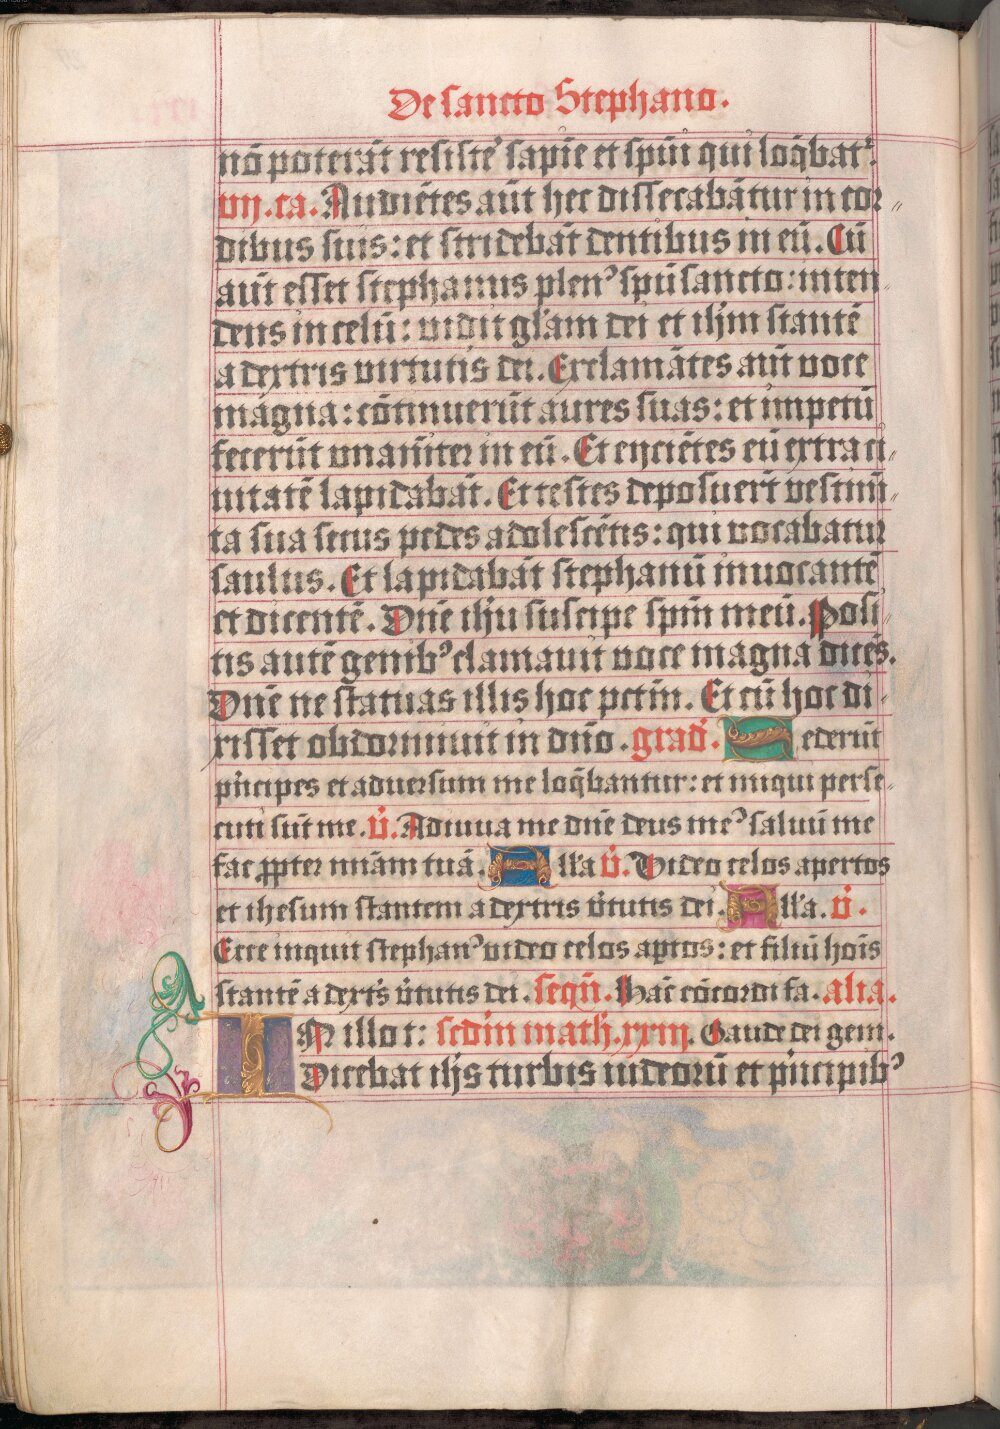 De sancto Stephano.
nō poterāt resiste᷑ sapīe et spūi qui loq̄bat᷑.
vij. ca. Audiētes aūt hec dissecabātur in cor
dibus suis: et stridebāt dentibus in eū. Cū
aūt esset stephanus plenꝰ spū sancto: inten
dens in celū: vidit gl'am dei et ih̄m stantē
a dextris virtutis dei. Exclamātes aūt voce
magna: cōtinuerūt aures suas: et impetū
fecerūt vnaīter in eū. Et eijciētes eū extra ci
uitatē lapidabāt. Et testes deposuert̄ vestimē
ta sua secus pedes adolescētis: qui vocabatur
saulus. Et lapidabāt stephanū inuocantē
et dicentē. Dn̄e ih̄u suscipe spm̄ meū. Posi
tis autē genibꝰ clamauit voce magna dicēs.
Dn̄e ne statuas illis hoc pctm̄. Et cū hoc di
xisset obdormiuit in dn̄o. grad̄. Sederūt
pͥncipes et aduersum me loq̄bantur: et iniqui perse
cuti sūt me. v̄. Adiuua me dn̄e deus meꝰ saluū me
fac ꝓpter mīam tuā. All'a v̄. Video celos apertos
et ihesum stantem a dextris v̄tutis dei. All'a. v̄.
Ecce inquit stephanꝰ video celos aꝑtos: et filiū hoīs
stantē a dext̄s v̄tutis dei. seqn̄. Hāc cōcordi fa. alia.
IN illo t: scd̄m math̄. xxiij. Gaude dei geni.
Dicebat ih̄s turbis iudeorū et pͥncipibꝰ